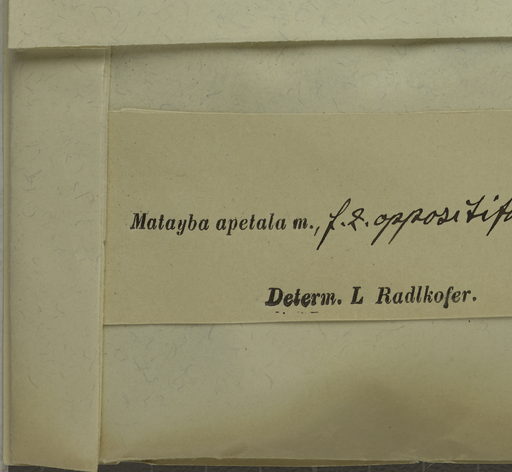 Matayba apetala m., f. 2. oppositifo
Determ. L Radlkofer.